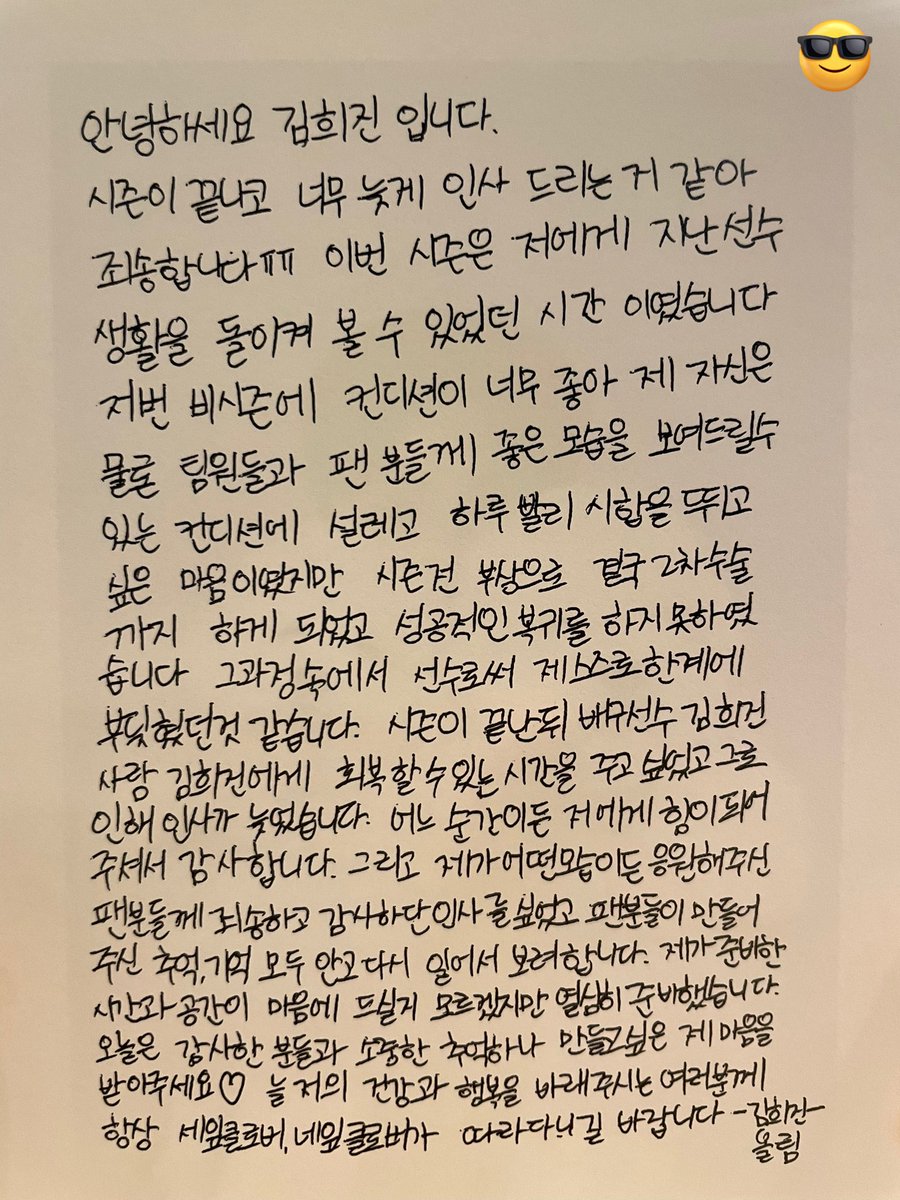 안녕하세요 김희진 입니다.
시즌이 끝나고 너무 늦게 인사 드리는거 같아
죄송합니다ㅠㅠ 이번 시즌은 저에게 지난선수
생활을 돌이켜 볼 수 있었던 시간 이였습니다
저번 비시즌에 컨디션이 너무 좋아 제 자신은
물론 팀원들과 팬 분들께 좋은 모습을 보여드릴수
있는 컨디션에 설레고 하루 빨리 시합을 뛰고
싶은 마음이였지만 시즌전 부상으로 결국 2차수술
까지 하게 되었고 성공적인 복귀를 하지못하였
습니다 그과정속에서 선수로써 제스스로한계에
부딪혔던것 같습니다. 시즌이 끝난뒤 배구선수 김희진
사람 김희진에게 회복할수있는 시간을 주고 싶었고 그로
인해 인사가 늦었습니다. 어느 순간이든 저에게 힘이되어
주셔서 감사합니다. 그리고 제가어떤모습이든 응원해주신
팬분들께 죄송하고 감사하단인사를싶었고 팬분들이 만들어
주신 추억,기억 모두 안고다시 일어서 보려합니다. 제가준비한
시간과 공간이 마음에 드실지 모르겠지만 열심히 준비했습니다.
오늘은 감사한 분들과 소중한 추억하나 만들고싶은 제 마음을
받아주세요♡ 늘 저의 건강과 행복을 바래주시는 여러분께
항상 세잎클로버,네잎클로버가 따라다니길 바랍니다 -김희진-
올림